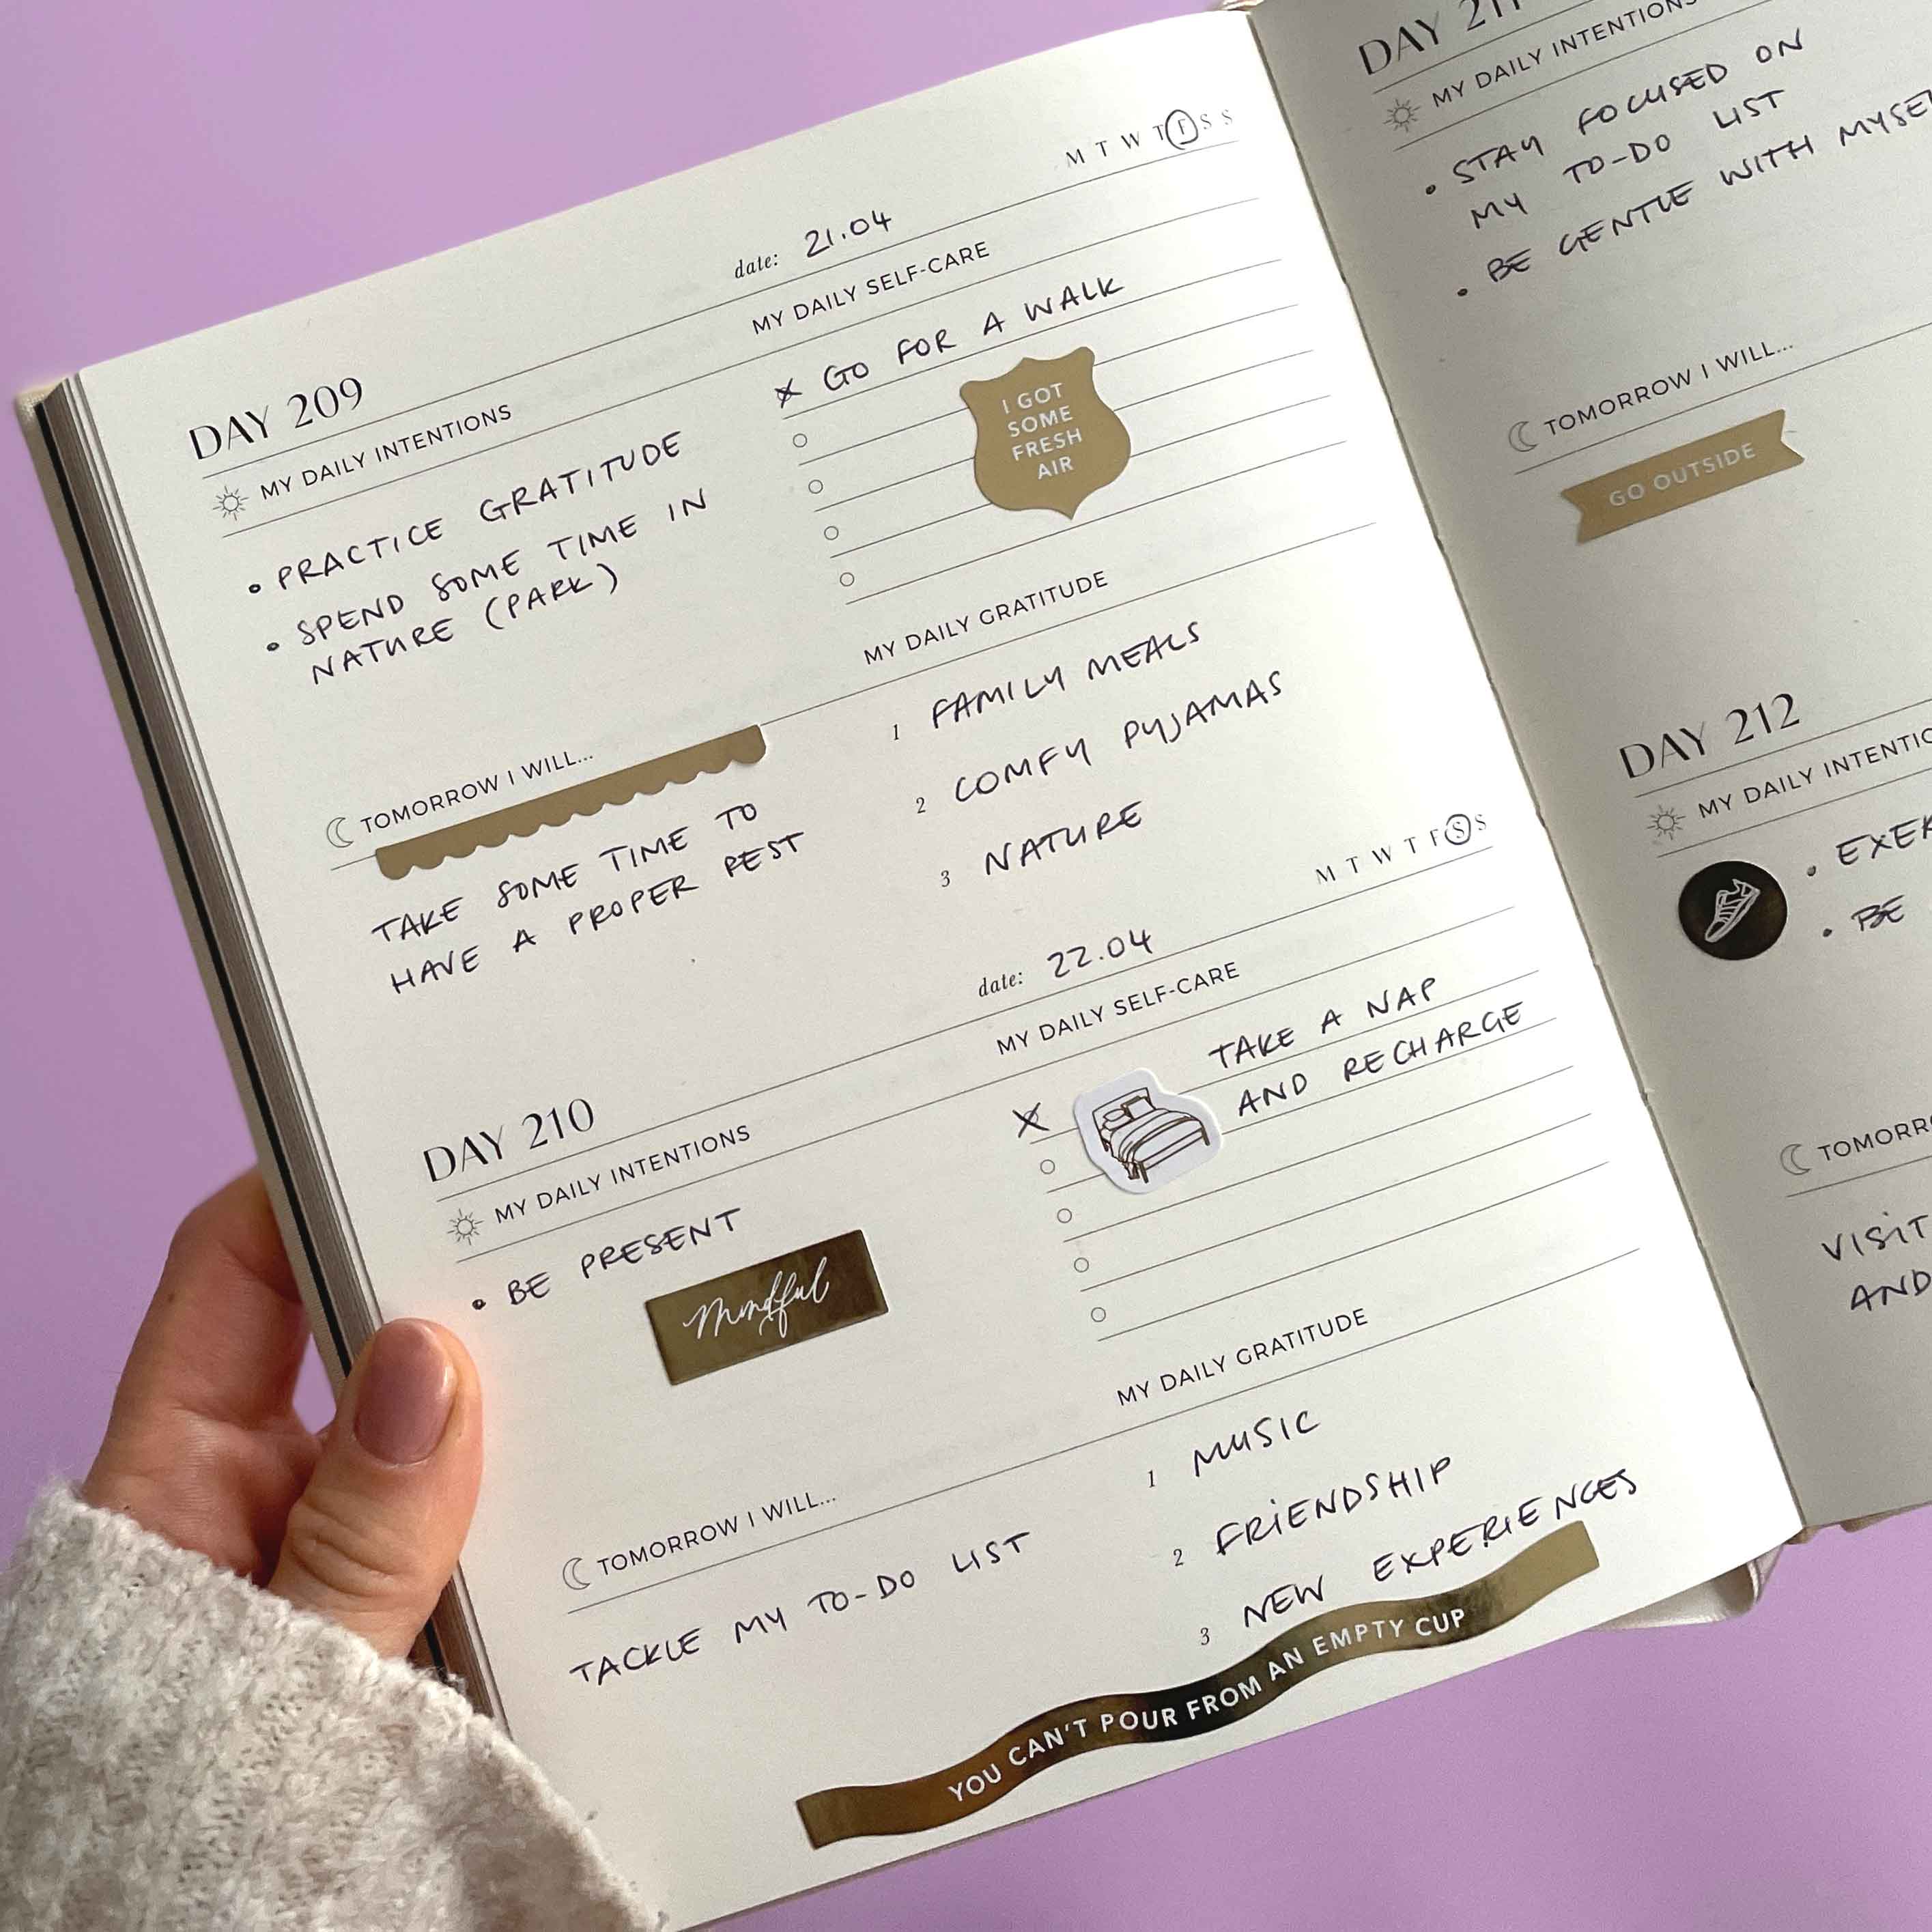 DAY 209
date: 21.04
M T W T F S S
MY DAILY INTENTIONS
• PRACTICE GRATITUDE
• SPEND SOME TIME IN
NATURE (PARK)
MY DAILY SELF-CARE
GO FOR A WALK
I GOT
SOME
FRESH
AIR
TOMORROW I WILL...
TAKE SOME TIME TO
HAVE A PROPER REST
MY DAILY GRATITUDE
1 FAMILY MEALS
2 COMFY PYJAMAS
3 NATURE
DAY 210
date: 22.04
M T W T F S S
MY DAILY INTENTIONS
• BE PRESENT
Mindful
MY DAILY SELF-CARE
TAKE A NAP
AND RECHARGE
TOMORROW I WILL...
TACKLE MY TO-DO LIST
MY DAILY GRATITUDE
1 MUSIC
2 FRIENDSHIP
3 NEW EXPERIENCES
YOU CAN'T POUR FROM AN EMPTY CUP
DAY 211
MY DAILY INTENTIONS
• STAY FOCUSED ON
MY TO-DO LIST
• BE GENTLE WITH
TOMORROW I WILL...
GO OUTSIDE
DAY 212
MY DAILY
• BE
VISIT
AND